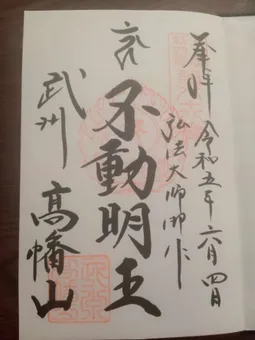 奉拝
令和五年六月四日
弘法大師御作
不動明王
武州
高幡山